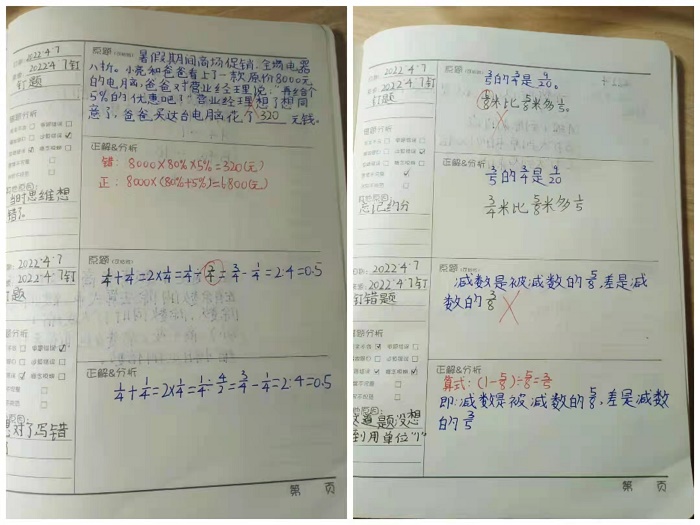 2022·4·7
2022·4·7钉
钉题
原题
暑假期间商场促销,全场电器
八折。小亮和爸爸看上了一款原价8000元
的电脑,爸爸对营业经理说:"再给个
5%的优惠吧!"营业经理想了想同
意了,爸爸买这台电脑花个320元钱。
正解&分析
错:8000×80%×5%=320(元)
正:8000×(80%+5%)=6800(元)
当时思维想
错了。
2022·4·7
2022·4·7钉
原题
1/4+1/4=2×1/4=1/4÷3/4=3/4-1/4=2:4=0.5
正解&分析
1/4+1/4=2×1/4=1/4÷4/2=3/4-1/4=2:4=0.5
对了写错
第 页
2022·4·7
2022·4·7钉
钉题
原题
3/5的3/4是9/20
6/8米比5/8米多1/5。
正解&分析
3/5的3/4是9/20
3/4米比5/8米多1/5
忘记约分
2022·4·7
2022·4·7钉
钉错题
减数是被减数的5/8,差是减
数的3/8
正解&分析
算式:(1-5/8)÷5/8=3/5
即:减数是被减数的5/8,差是减数
的3/5
这道题没想
到用单位"1"
第 页